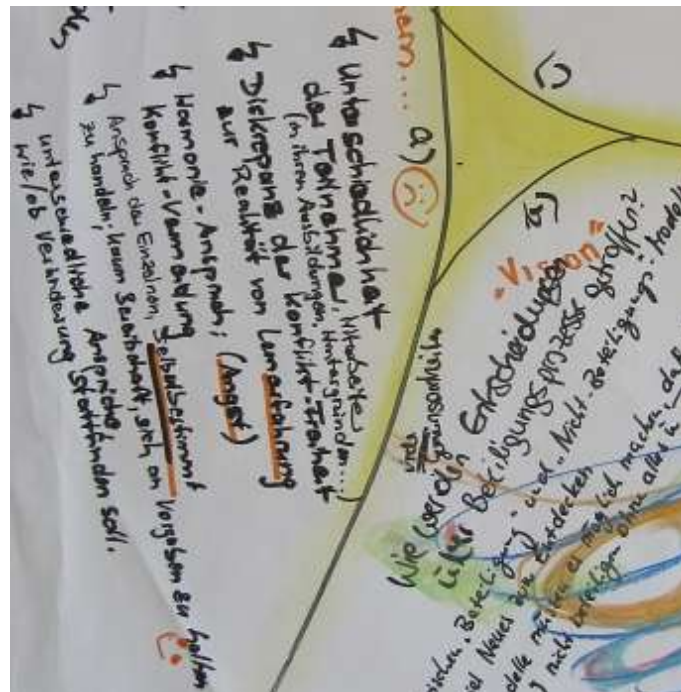 nern... a)
↯ Unterschiedlichkeit
der Teilnehmer, Mitarbeiter
(in ihren Ausbildungen, Hintergründen...)
↯ Diskrepanz der Konflikt-Freiheit
zur Realität von Lernerfahrung
↯ Harmonie-Anspruch; (Angst)
Konflikt-Vermeidung
↯ Anspruch der Einzelnen, selbstbestimmt
zu handeln, kaum Bereitschaft, sich an Vorgaben zu halten
↯ unterschiedliche Ansprüche,
wie/ob Veränderung stattfinden soll.
"Vision"
Wie werden Entscheidungen
über Beteiligungsprozesse getroffen?
"Beteiligung" und "Nicht-Beteiligungs"-Modell
viel Neues zu entdecken
es möglich machen, daß
nicht beteiligen ohne alles